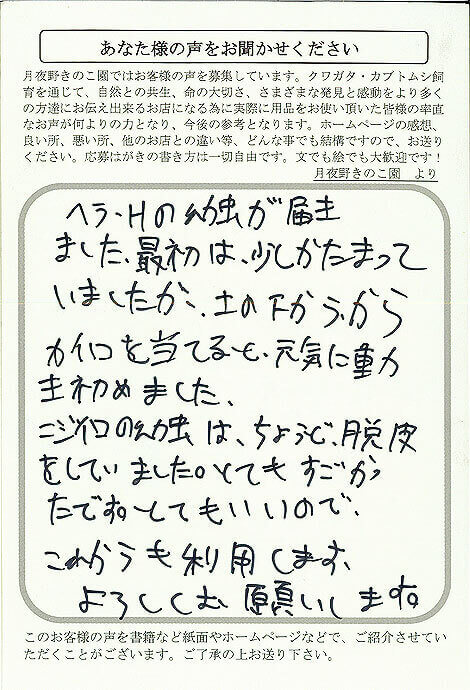 あなた様の声をお聞かせください
月夜野きのこ園ではお客様の声を募集しています。クワガタ・カブトムシ飼
育を通じて、自然との共生、命の大切さ、さまざまな発見と感動をより多く
の方達にお伝え出来るお店になる為に実際に用品をお使い頂いた皆様の率直
なお声が何よりの力となり、今後の参考となります。ホームページの感想、
良い所、悪い所、他のお店との違い等、どんな事でも結構ですので、お送り
ください。応募はがきの書き方は一切自由です。文でも絵でも大歓迎です！
月夜野きのこ園　より
ヘラ・Hの幼虫が届き
ました、最初は、少しかたまって
いましたが、土の下から、から
カイロを当てると、元気に動
き初めました、
ニジイロの幼虫は、ちょうど、脱皮
をしていました。とてもすごかっ
たです。とてもいいので、
これからも利用します、
よろしくお願いします。
このお客様の声を書籍など紙面やホームページなどで、ご紹介させてい
ただくことがございます。ご了承の上お送り下さい。